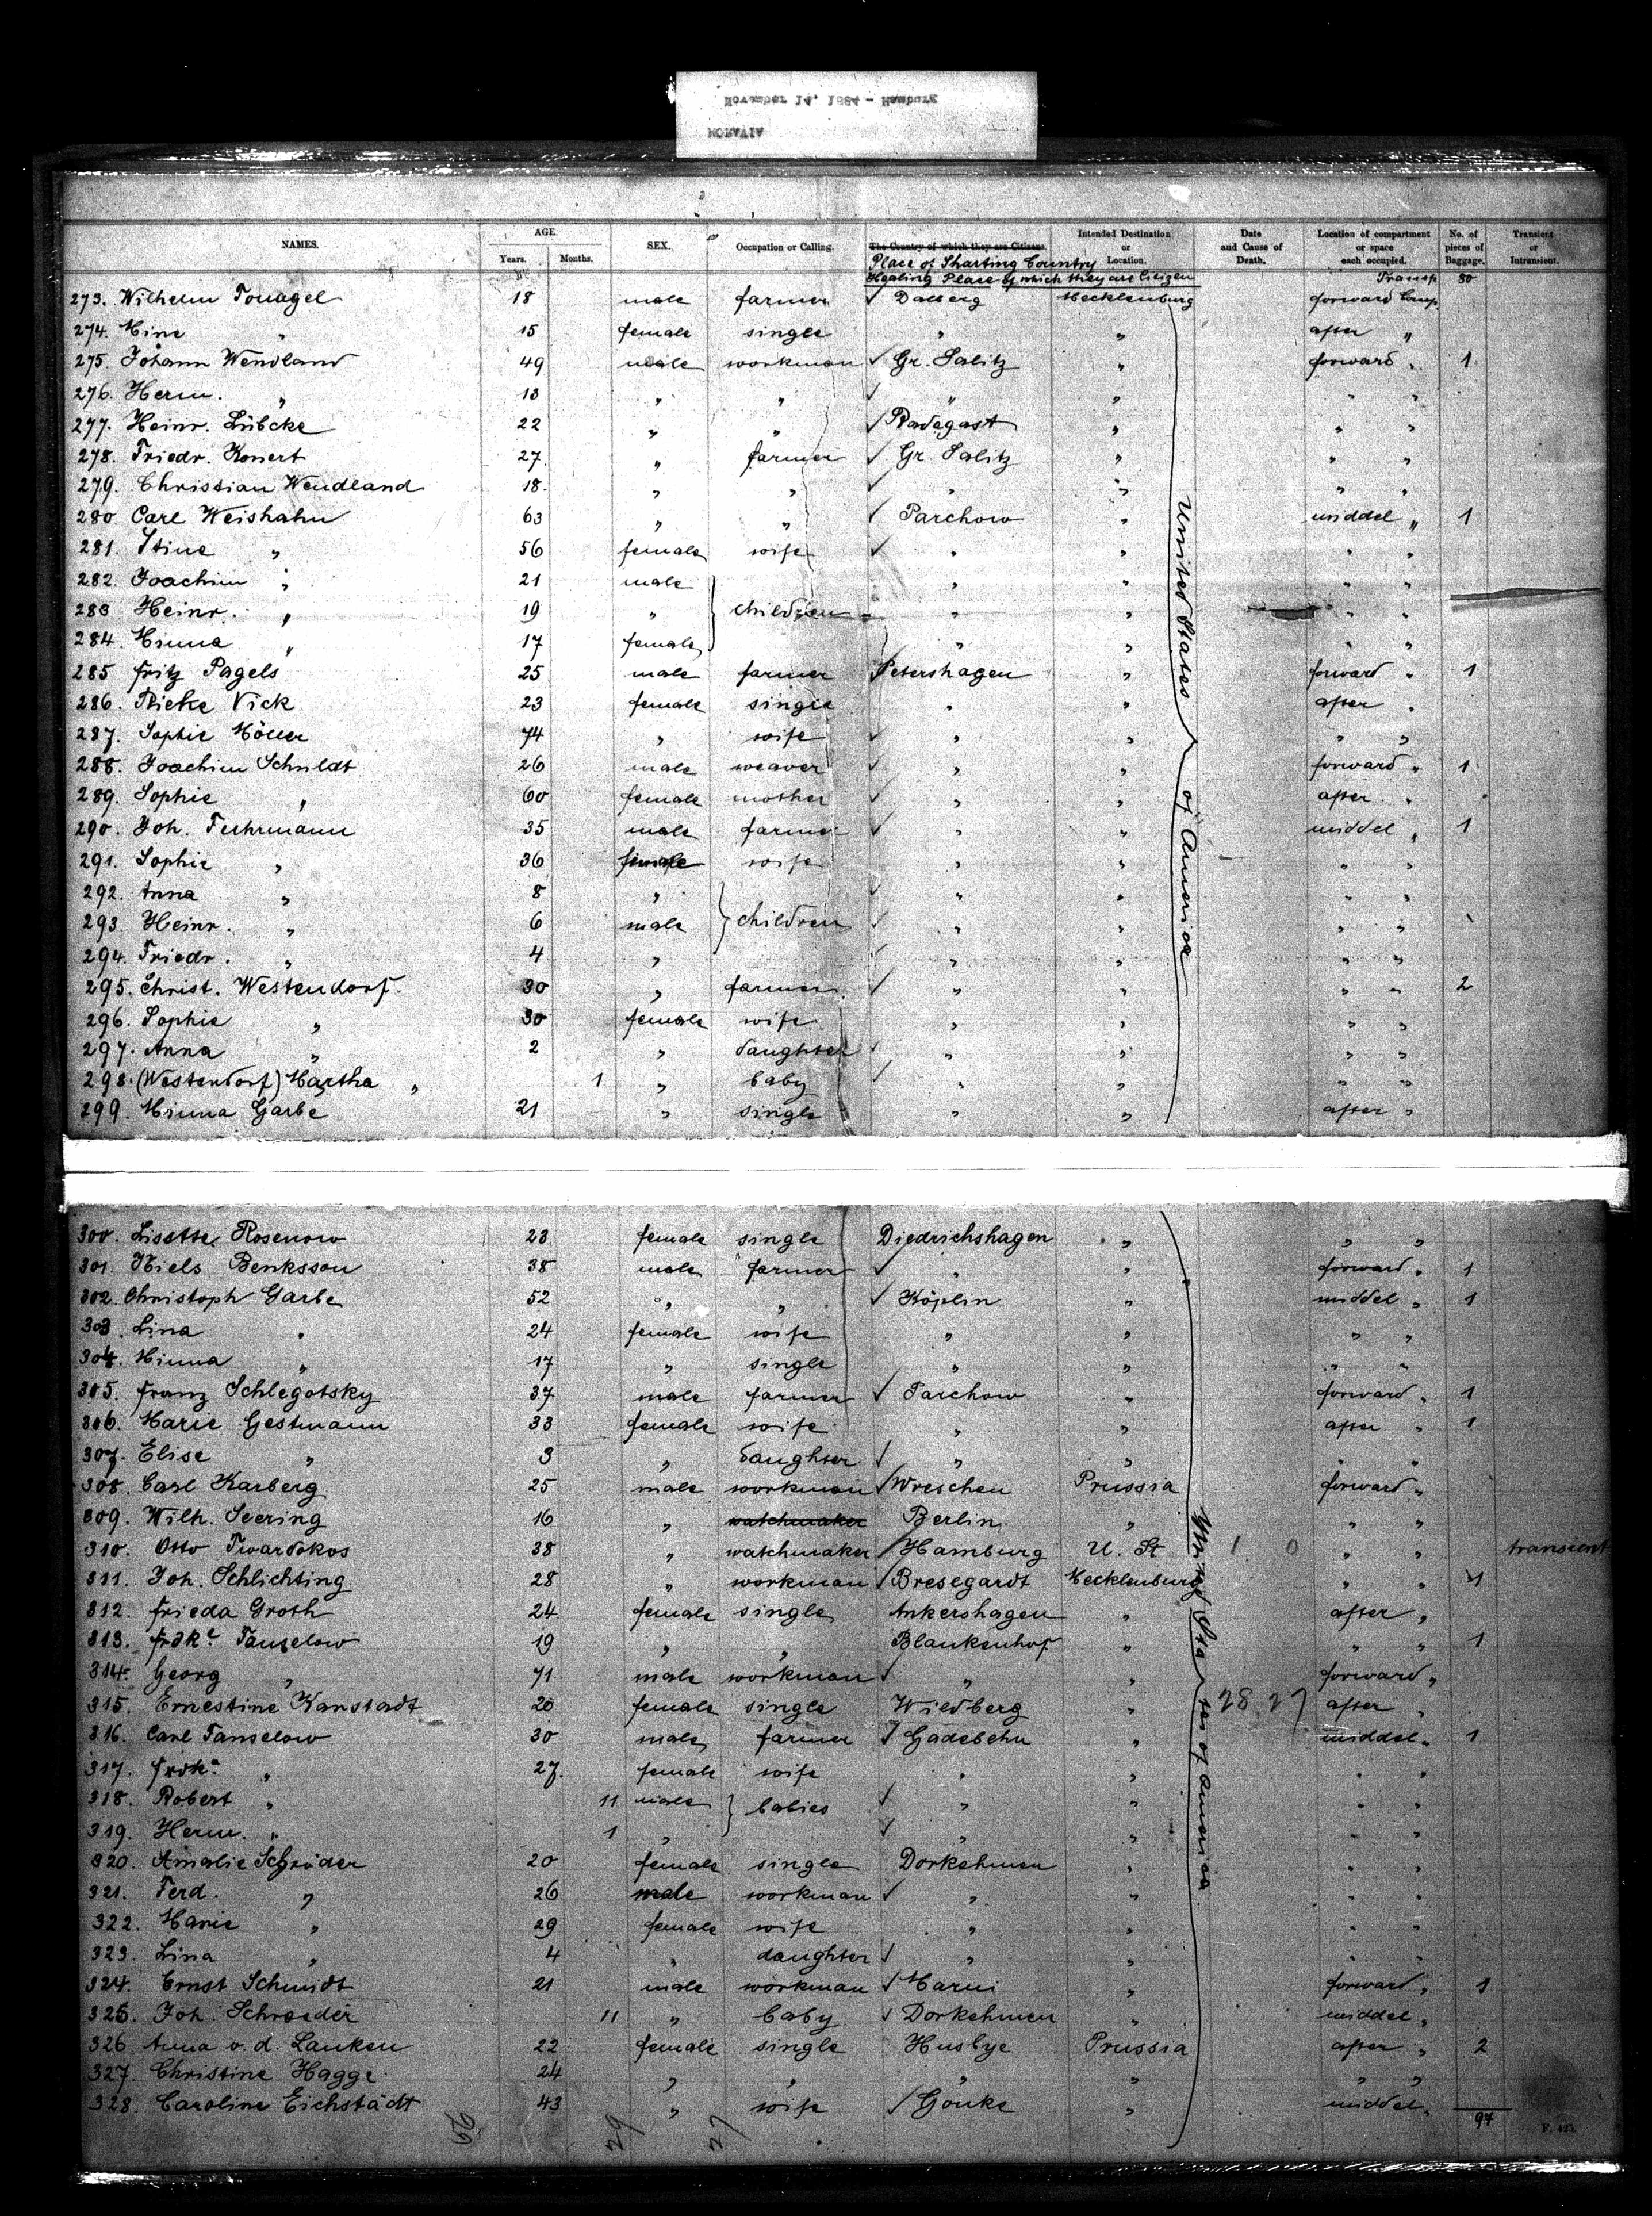 November 14, 1884 - Hamburg
MORAVIA
NAMES. AGE. Years. Months. SEX. Occupation or Calling. The Country of which they are Citizens. Intended Destination or Location. Date and Cause of Death. Location of compartment or space each occupied. No. of pieces of Baggage. Transient or Intransient.
Place of Starting Country
Healing Place of which they are Citizen Transp. 80
273. Wilhelm 18 male farmer ✓ Mecklenburg forward Comp.
274. Mine " 15 female single " " after "
275. Johann Wendland 49 male workman ✓ Gr. Salitz " forward " 1
276. Herm. " 13 " " ✓ " " " "
277. Heinr. Lübcke 22 " " ✓ Radegast " " "
278. Friedr. Konert 27 " farmer ✓ Gr. Salitz " " "
279. Christian Wendland 18. " " ✓ " " " "
280 Carl Weishahn 63 " " ✓ Parchow " middel " 1
281. Stine " 56 female wife ✓ " " " "
282. Joachim " 21 male " " " "
283 Heinr. " 19 " } children " " " "
284. Minna " 17 female " " " "
285 Fritz Pagels 25 male farmer Petershagen " forward " 1
286. Rieke Vick 23 female single " " after "
287. Sophie Möller 74 " wife ✓ " " " "
288. Joachim Schuldt 26 male weaver ✓ " " forward " 1
289. Sophie " 60 female mother ✓ " " after "
290. Joh. Fuhrmann 35 male farmer ✓ " " middel " 1
291. Sophie " 36 female wife " " " "
292. Anna " 8 " ✓ " " " "
293. Heinr. " 6 male } children ✓ " " " "
294. Friedr. " 4 " ✓ " " " "
295. Christ. Westendorf. 30 " farmer ✓ " " " " 2
296. Sophie " 30 female wife " " " "
297. Anna " 2 " daughter ✓ " " " "
298. (Westendorf) Martha " 1 " baby ✓ " " " "
299. Minna Garbe 21 " single " " after "
United States of America
300. Lisette Rosenow 23 female single Diedrichshagen " " "
301. Niels Benksson 38 male farmer ✓ " " forward " 1
302. Christoph Garbe 52 " " ✓ Köplin " middel " 1
303. Lina " 24 female wife " " " "
304. Minna " 17 " single " " " "
305. Franz Schlegotsky 37 male farmer ✓ Parchow " forward " 1
306. Marie Gestmann 33 female wife " " after " 1
307. Elise " 3 " daughter ✓ " " " "
308. Carl Karberg 25 male workman ✓ Wreschen Prussia forward "
309. Wilh. Seering 16 " watchmaker Berlin " " "
310. Otto Twardokos 38 " watchmaker ✓ Hamburg U. St 1 0 " " transient
311. Joh. Schlichting 28 " workman ✓ Bresegardt Mecklenburg " " 1
312. Frieda Groth 24 female single Ankershagen " after "
313. Frdke Tanselow 19 " " Blankenhof " " " 1
314. Georg " 71 male workman ✓ " " forward "
315. Ernestine Kanstadt 20 female single Wildberg " 28 27 after "
316. Carl Tanselow 30 male farmer ✓ Gädebehn " middel " 1
317. Frdke " 27. female wife " " " "
318. Robert " 11 male } babies ✓ " " " "
319. Herm. " 1 " ✓ " " " "
320. Amalie Schröder 20 female single Dorkehmen " " "
321. Ferd. " 26 male workman ✓ " " " "
322. Marie " 29 female wife " " " "
323. Lina " 4 " daughter ✓ " " " "
324. Ernst Schmidt 21 male workman ✓ " forward " 1
325. Joh. Schroeder 11 " baby ✓ Dorkehmen " middel "
326 Anna v. d. Lanken 22 female single Husbye Prussia after " 2
327. Christine Hagge 24 " " " " " "
328. Caroline Eichstädt 43 " wife ✓ " middel "
United States of America
29 29 27 97
F. 423.